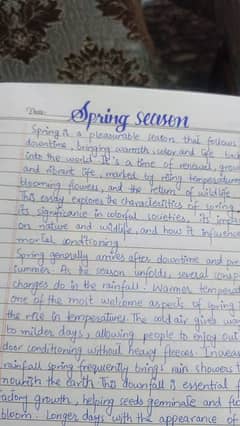 Date:
Spring season
Spring is a pleasurable season that follows
downtime, bringing warmth, color and life back
into the world. It's a time of renewal, grow
and vibrant life, marked by rising temperature
blooming flowers, and the return of wildlife.
This essay explores the characteristics of spring
its significance in colorful societies, its impa
on nature and wildlife, and how it influences
mortal conditioning.
Spring generally arrives after downtime and pre
summer. As the season unfolds, several consp
changes do in the rainfall. Warmer temperat
one of the most welcome aspects of spring
the rise in temperatures. The cold air gives wa
to milder days, allowing people to enjoy out
door conditioning without heavy fleeces. Increas
rainfall spring frequently brings rain showers t
nourish the earth. This downfall is essential f
factory growth, helping seeds germinate and fl
bloom. Longer days with the appearance of